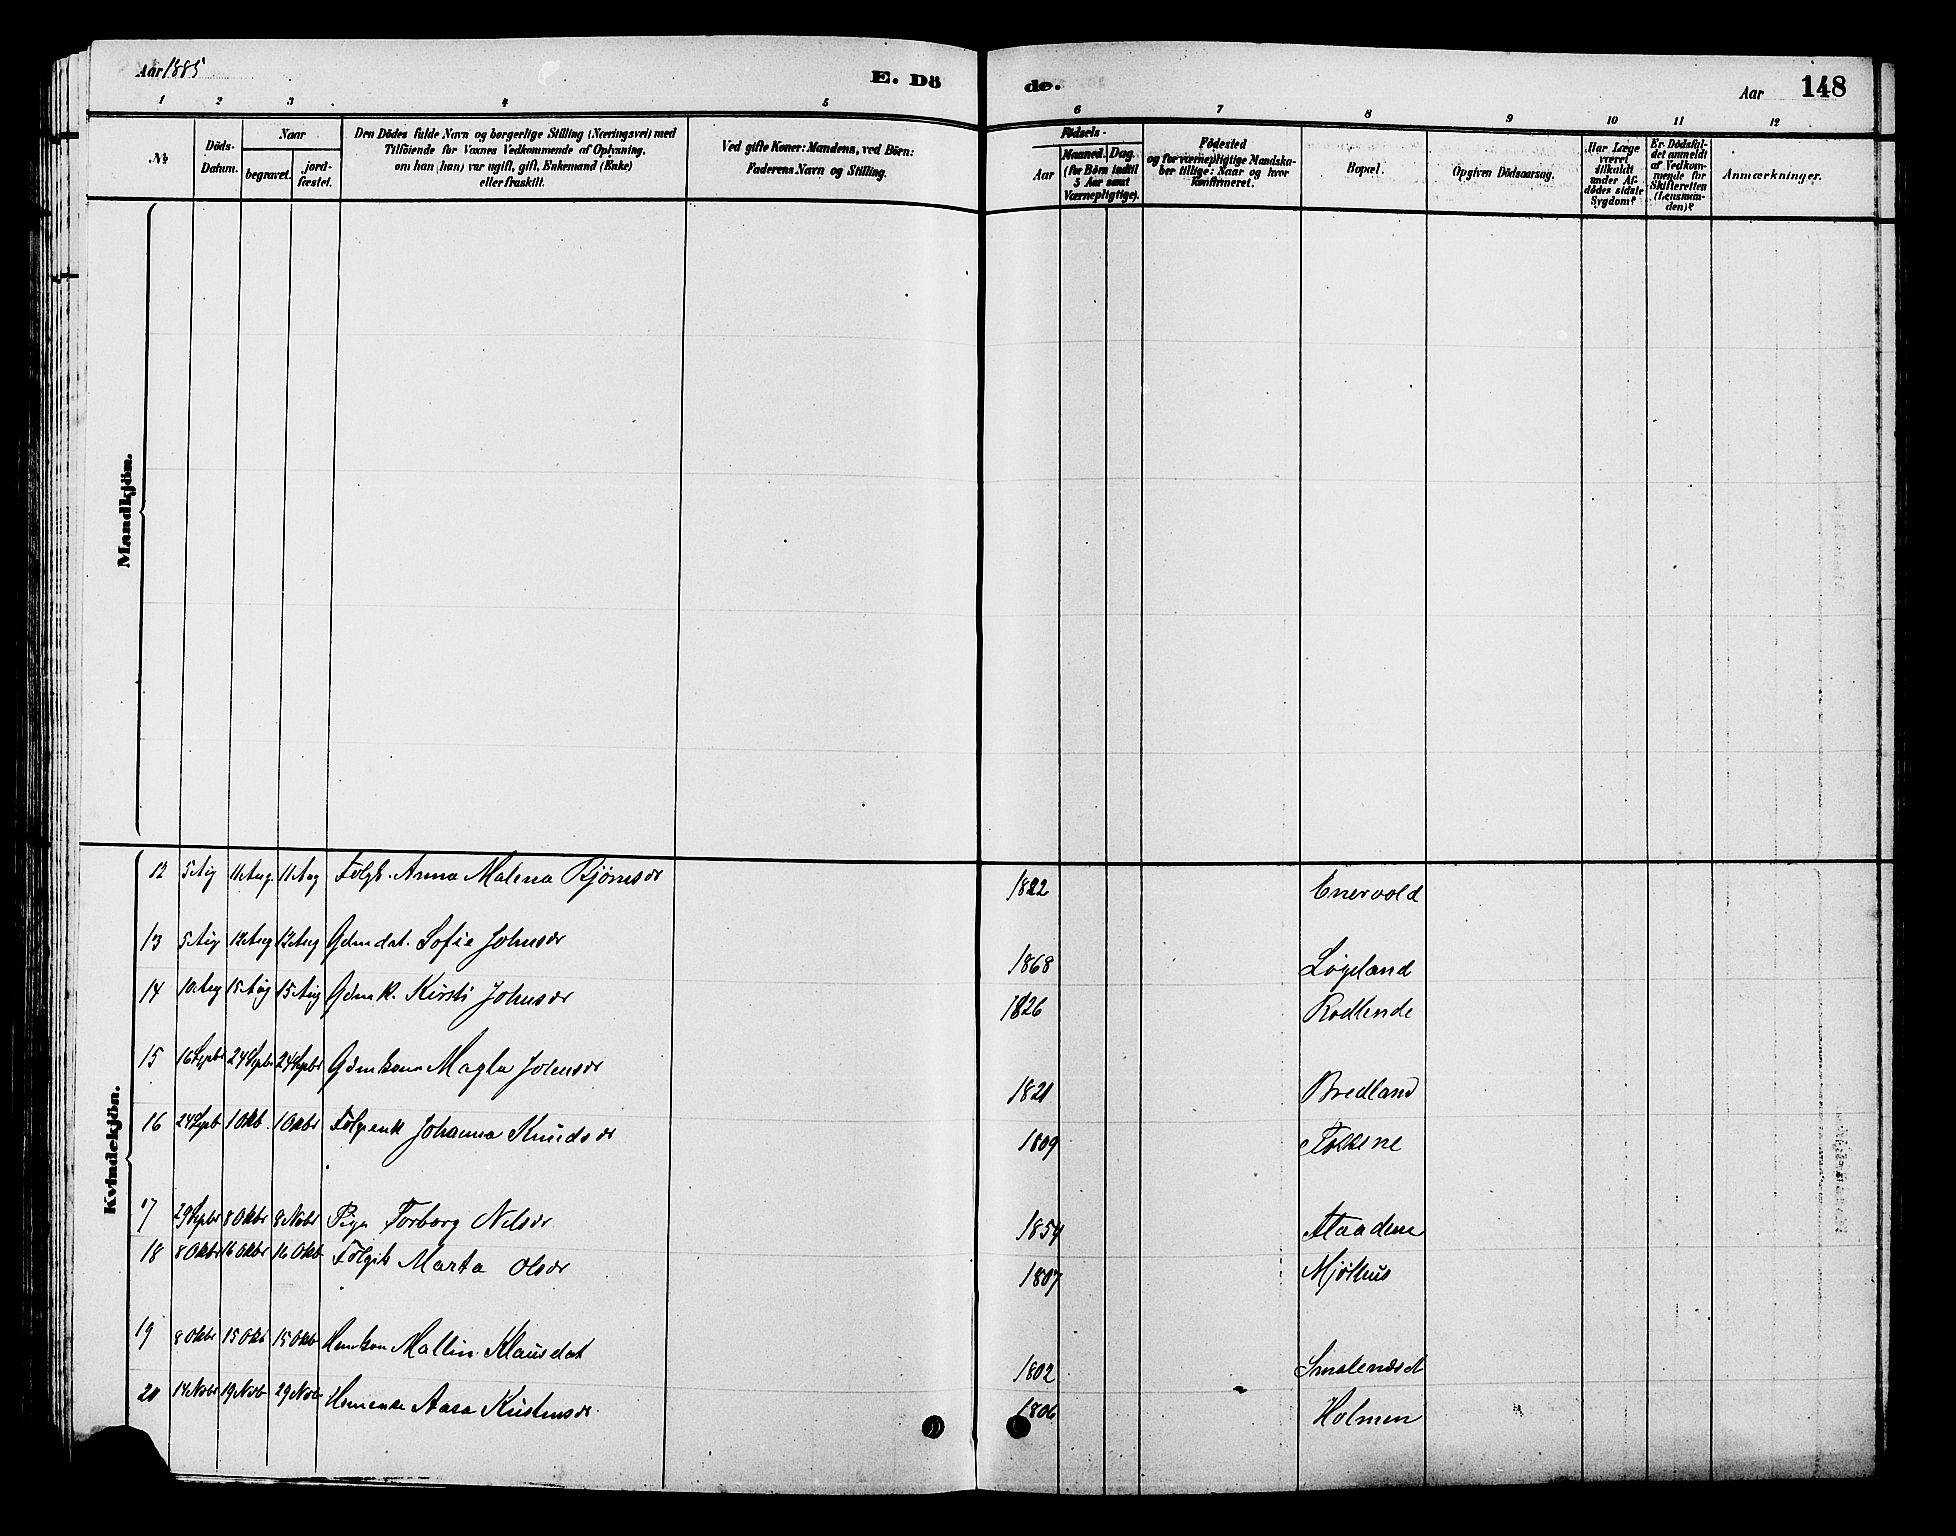 Aar 1885
E. Dö
de.
Aar
148
1 2 3 4 5 6 7 8 9 10 11 12
№
Döds-
Datum.
Naar
begravet.
jord-
fæstet.
Den Dödes fulde Navn og borgerlige Stilling (Næringsvei) med
Tilföiende for Voxnes Vedkommende af Oplysning,
om han (hun) var ugift, gift, Enkemand (Enke)
eller fraskilt.
Ved gifte Koner: Mandens, ved Börn:
Faderens Navn og Stilling.
Födsels-
Aar
Maaned.
Dag.
(for Börn indtil
5 Aar samt
Værnepligtige).
Födested
og for værnepligtige Mandska-
ber tillige: Naar og hvor
konfirmeret.
Bopæl.
Opgiven Dödsaarsag.
Har Læge
været
tilkaldt
under Af-
dödes sidste
Sygdom?
Er Dödsfal-
det anmeldt
af Vedkom-
mende for
Skifteretten
(Lensman-
den)?
Anmærkninger.
Mandkjön.
Kvindekjön.
12 5 Aug 11 Aug 11 Aug Folgk. Anna Malena Bjørnsdr 1822 Enervold
13 5 Aug 12 Aug 12 Aug Gdmdat. Sofie Johnsdr 1868 Løgeland
14 10 Aug 15 Aug 15 Aug Gdmk. Kirsti Johnsdr 1826
15 16 Septbr 24 Septbr 24 Septbr Gdmkone Magla Johnsdr 1821 Bredland
16 24 Septb 1 Okb. 1 Okbr Folgeenk Johanna Knudsdr 1809
17 29 Septbr 8 Okbr 8 Nobr Pige Torborg Nilsdr 1854
18 8 Okbr 16 Okbr 16 Okb Folgek Marta Olsdr 1807 Mjølhus
19 8 Okbr 15 Okb 15 Okb Hmkon Mallin Klausdat 1802
20 14 Nobr 19 Nob 29 Nob Hmenke Aasa Kristensdr. 1806 Holmen